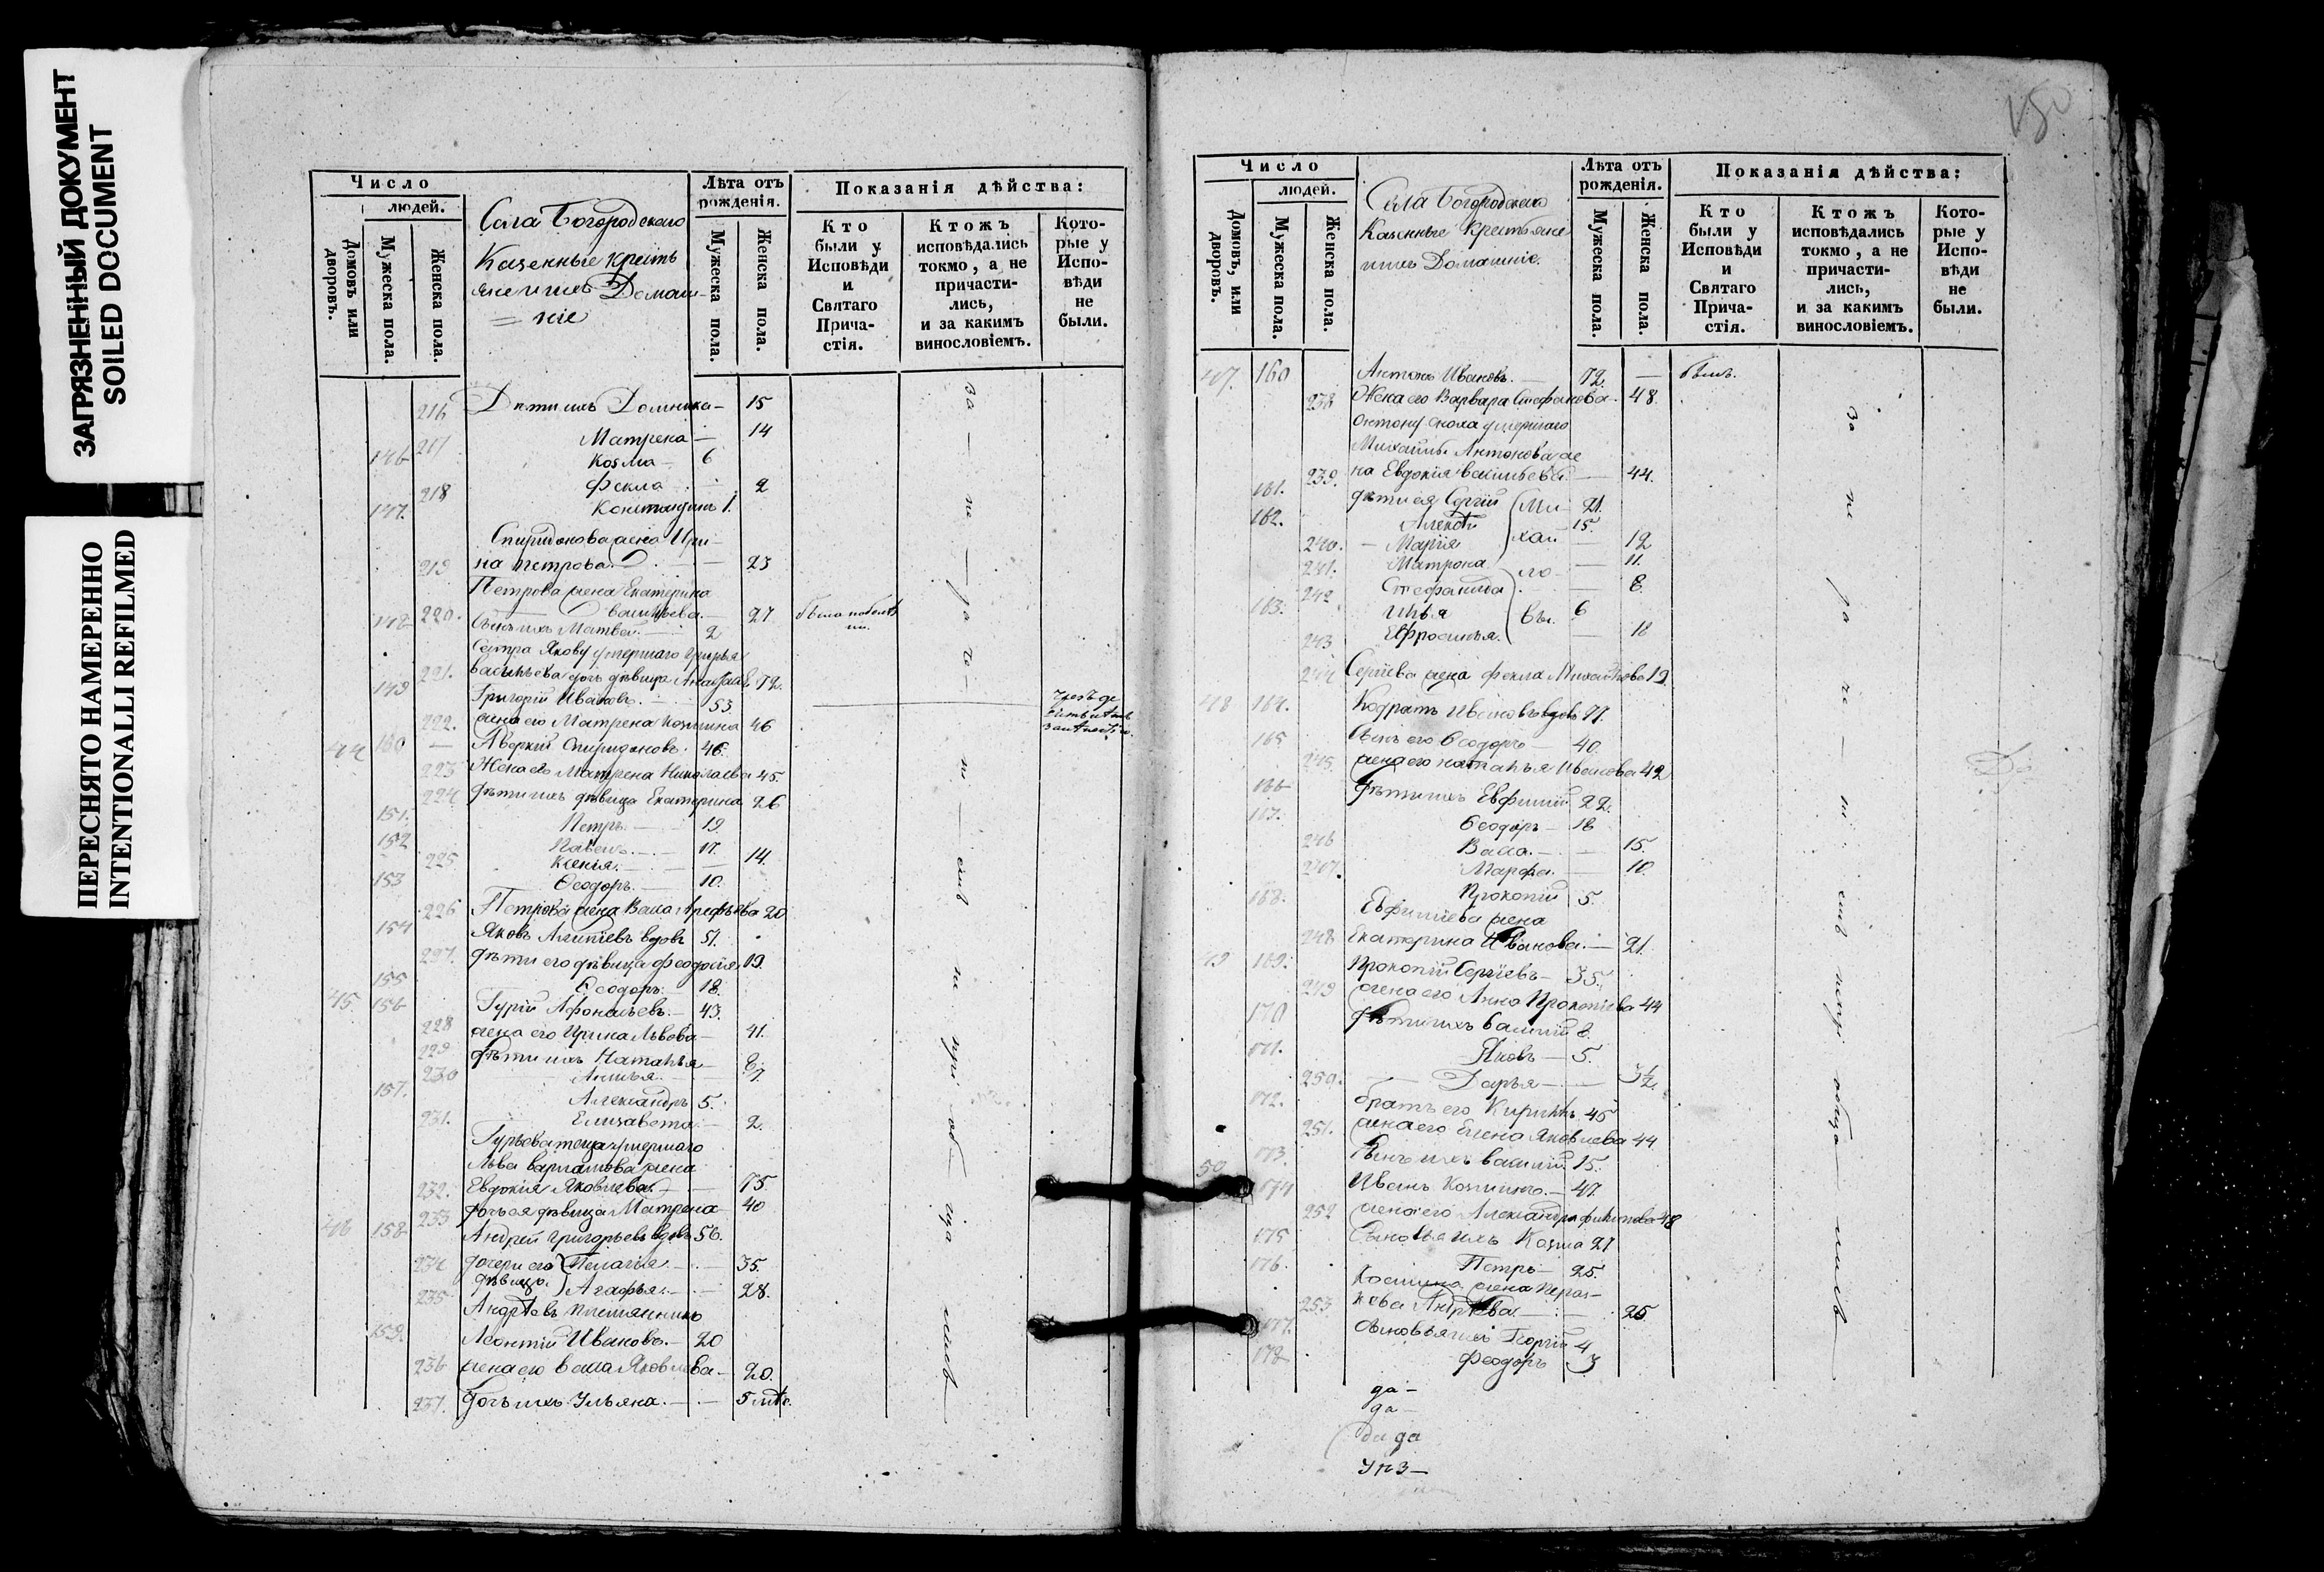 ЗАГРЯЗНЕННЫЙ ДОКУМЕНТ
SOILED DOCUMENT
ПЕРЕСНЯТО НАМЕРЕННО
INTENTIONALLI REFILMED
Число
людей.
Домовъ или дворовъ.
Мужеска пола.
Женска пола.
Села Богородскаго
Казенные кресть
яне и ихъ Домаш-
=ніе
Лѣта отъ рожденія.
Мужеска пола.
Женска пола.
Показанія дѣйства:
Кто были у Исповѣди и Святаго Прича-стія.
Ктожъ исповѣдались токмо, а не причасти-лись, и за какимъ винословіемъ.
Кото-рые у Испо-вѣди не были.
216 Дѣти ихъ Домника — 15
217 Матрена — 14
146 Козма — 6
218 Фекла — 2
147. Константинъ 1.
Спиридонова жена Ири-
219 на Петрова — 23
Петрова жена Екатерина
220. Васильева — 27.
148 Сынъ ихъ Матвей — 2
Сестра Якову умершаго
221. Васильева дочь дѣвица 72.
149 Григорій Ивановъ. — 53.
222. жена его Матрена Козмина 46
44 150 — Аверкій Спиридоновъ. 46.
223 Жена его Матрена Николаева 45.
224 Дѣти ихъ дѣвица Екатерина 26
151. Петръ. — 19.
152 Павелъ. — 17.
225 Ксенія. — 14.
153 Ѳеодоръ. — 10.
226 Петрова жена Васса Арефьева 20
154 Яковъ вдовъ 51.
227. Дѣти его дѣвица Феодосія 19.
155 Ѳеодоръ. — 18.
45. 156 Гурій Афонасьевъ. — 43.
228 жена его Ирина Львова — 41.
229 Дѣти ихъ Наталья — 8.
230 7.
157. Александръ 5.
231. Елизавета — 2.
Гурьева теща умершаго
Льва Варламова жена
232. Евдокія Яковлева. — 75.
233 дочь ея дѣвица Матрена — 40
46 158 Андрей Григорьевъ вдовъ 56.
234 дочери его Пелагія — 35.
235 дѣвицы. Агафья. — 28.
Андреевъ племянникъ
159. Леонтій Ивановъ. — 20
236 жена его Васса Яковлева — 20.
237. Дочь ихъ Ульяна. — 5 мѣс.
за — не — ра — че — ні — емъ не прі об ща лись
150
Число
людей.
Домовъ, или дворовъ.
Мужеска пола.
Женска пола.
Села Богородскаго
Казенные Крестьяне
ихъ Домашніе.
Лѣта отъ рожденія.
Мужеска пола.
Женска пола.
Показанія дѣйства:
Кто были у Исповѣди и Святаго Прича-стія.
Ктожъ исповѣдались токмо, а не причасти-лись, и за какимъ винословіемъ.
Кото-рые у Испо-вѣди не были.
47. 160 Антонъ Ивановъ. — 72. — былъ.
238 Жена его Варвара Стефанова — 48.
Антону сноха умершаго
Михайлы Антонова же
239. на Евдокія Васильева — 44.
161. дѣти ея Сергій Ми 21.
162. Алексѣй 15.
240. — Марія хай — 12
241. Матрона — 11.
242 Стефанида ло — 8.
163. Илья 6
243 Евфросинья. вы. — 18
244 Сергіева жена Фекла Михайлова 19.
48 164. Кодратъ Ивановъ вдовъ 77.
165 Сынъ его Ѳеодоръ — 40.
245. жена его Наталья Иванова 42
166 Дѣти ихъ Евфимій 22.
167. Ѳеодоръ — 18
246 Васса. — 15.
247. Марфа. — 10.
168. Прокопій 5.
Евфиміева жена
248 Екатерина Иванова. — 21.
49 169. Прокопій Сергіевъ — 35.
249 жена его Анна Прокопіева 44
170 Дѣти ихъ Василій 8.
171. Яковъ — 5.
250. Дарья — 3½.
172. братъ его Кириллъ 45
251. жена его Елена Яковлева 44
173. Сынъ ихъ Василій 15.
50 174 Иванъ Козминъ. — 47.
252 жена его Александра 48
175 Сыновья ихъ Козма 27
176. Петръ — 25.
Козмина жена Парас-
253 кева Андреева — 25
177. Сыновья ихъ Георгій 4
178 Феодоръ 3
за не — ра — че — ні — емъ не прі обща — лись
да —
да —
да да